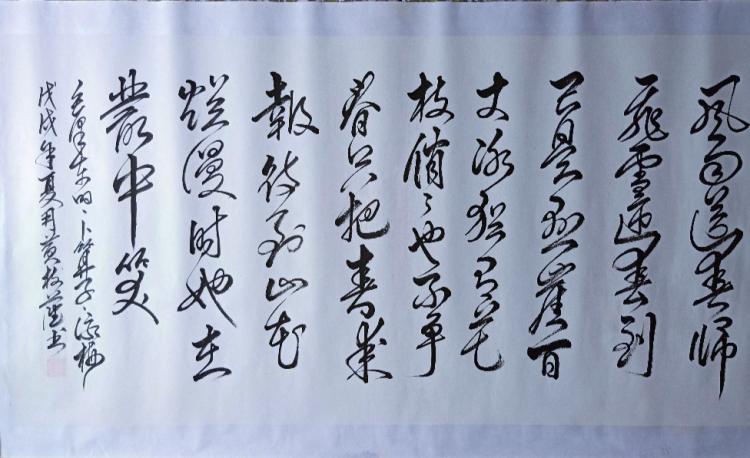 风雨送春归
飞雪迎春到
已是悬崖百
丈冰犹有花
枝俏〻也不争
春只把春来
報待到山花
烂漫时她在
叢中笑
毛泽东的、卜算子、咏梅
戊戌年夏月黄书